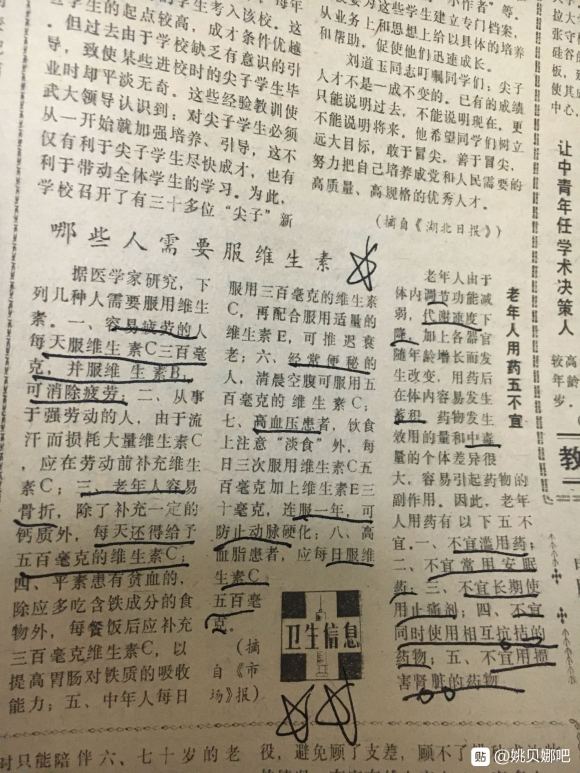 学生的起点较高，成才条件优越
，但过去由于学校缺乏有意识的引
导，致使某些进校时的尖子学生毕
业时却平淡无奇。这些经验教训使
武大领导认识到：对尖子学生必须
从一开始就加强培养、引导；这不
仅有利于尖子学生尽快成才，也有
利于带动全体学生的学习。为此，
学校召开了有三十多位“尖子”新
要为这些学生建立专门档案，
从业务上和思想上给以具体的培养
和帮助，促使他们迅速成长。
刘道玉同志叮嘱同学们：尖子
人才不是一成不变的。已有的成绩
只能说明过去，不能说明现在，更
不能说明将来。他希望同学们树立
远大目标，敢于冒尖，善于冒尖，
努力把自己培养成党和人民需要的
高质量、高规格的优秀人才。
（摘自《湖北日报》）
哪些人需要服维生素
据医学家研究，下
列几种人需要服用维生
素。一、容易疲劳的人
每天服维生素C三百毫
克，并服维生素B，
可消除疲劳。二、从事
于强劳动的人，由于流
汗而损耗大量维生素C
，应在劳动前补充维生
素C；三、老年人容易
骨折，除了补充一定的
钙质外，每天还得给予
五百毫克的维生素C；
四、平素患有贫血的，
除应多吃含铁成分的食
物外，每餐饭后应补充
三百毫克维生素C，以
提高胃肠对铁质的吸收
能力；五、中年人每日
服用三百毫克的维生素
C，再配合服用适量的
维生素E，可推迟衰
老；六、经常便秘的
人，清晨空腹可服用五
百毫克的维生素C；
七、高血压患者，饮食
上注意“淡食”外，每
日三次服用维生素C五
百毫克加上维生素E三
十毫克，连服一年，可
防止动脉硬化；八、高
血脂患者，应每日服维
生素C
五百毫
克。
（摘
自《市
场》报）
卫生信息
老年人用药五不宜
老年人由于
体内调节功能减
弱，代谢速度下
降，加上各器官
随年龄增长而发
生改变，用药后
在体内容易发生
蓄积。药物发生
效用的量和中毒
量的个体差异很
大，容易引起药物的
副作用。因此，老年
人用药有以下五不
宜。一、不宜滥用药；
二、不宜常用安眠
药；三、不宜长期使
用止痛剂；四、不宜
同时使用相互拮抗的
药物；五、不宜用损
害肾脏的药物。
让中青年任学术决策人
较高
年龄
岁。
教
时只能陪伴六、七十岁的老
役，避免顾了支差，顾不了
贴 @姚贝娜吧